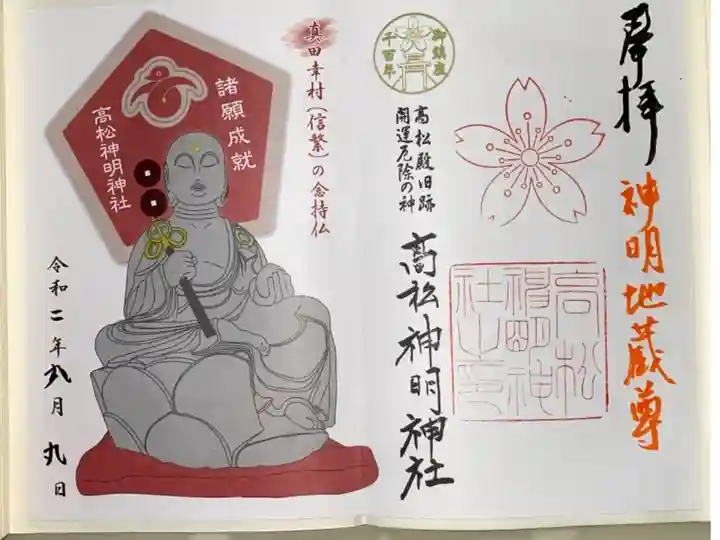 奉拝
神明地蔵尊
高松
神明神
社之印
御鎮座
千百年
高松殿旧跡
開運厄除の神
高松神明神社
真田幸村(信繁)の念持仏
諸願成就
高松神明神社
令和二年八月九日